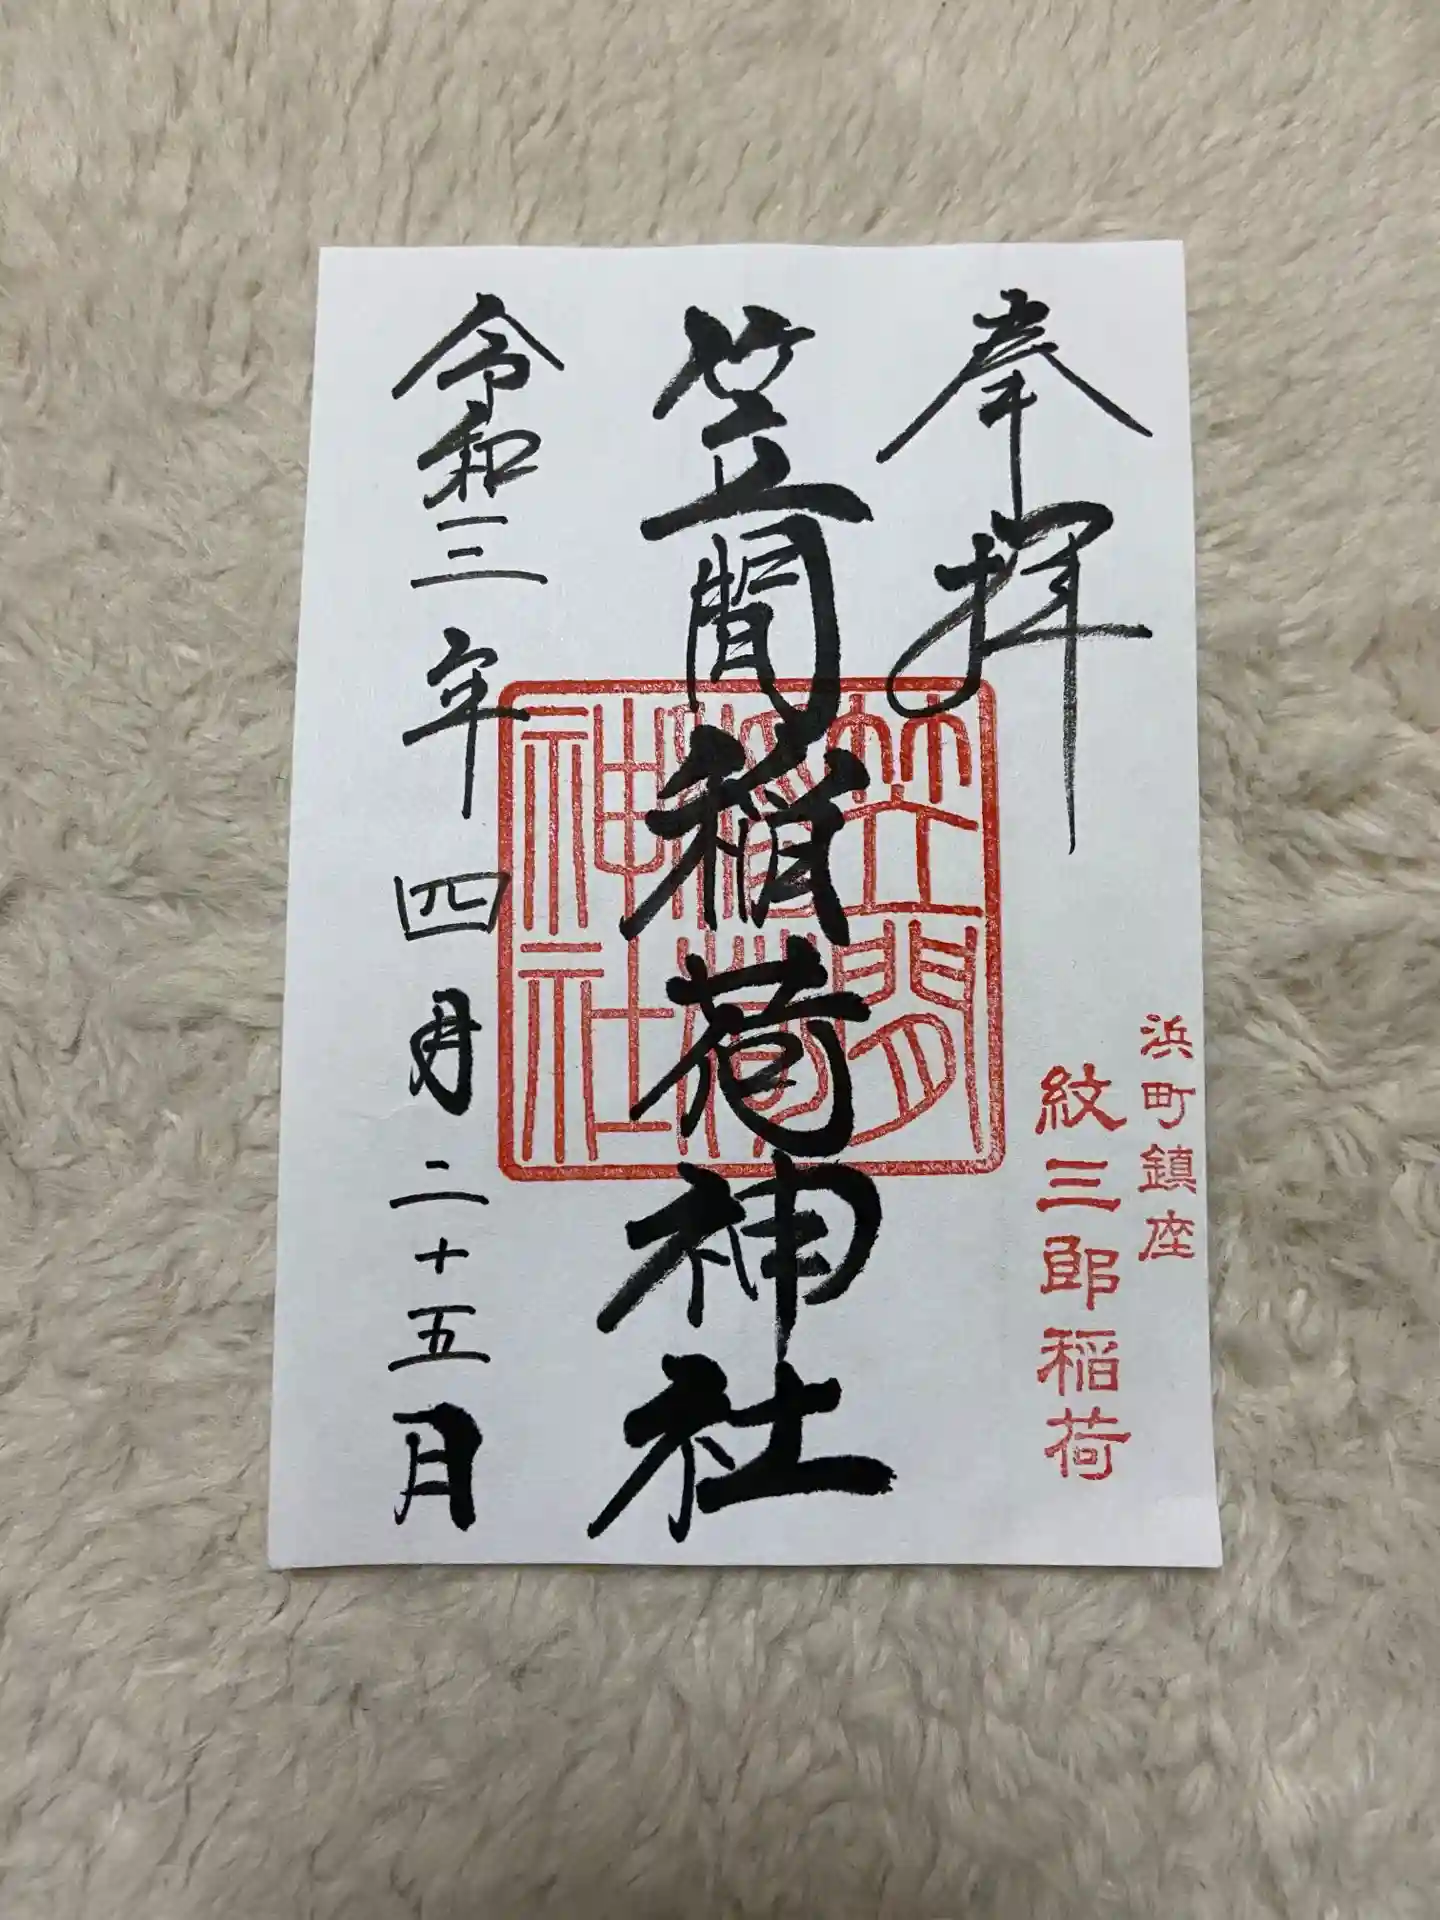 奉拝
浜町鎮座
紋三郎稲荷
笠間稲荷神社
笠間稲荷神社
令和三年四月二十五日